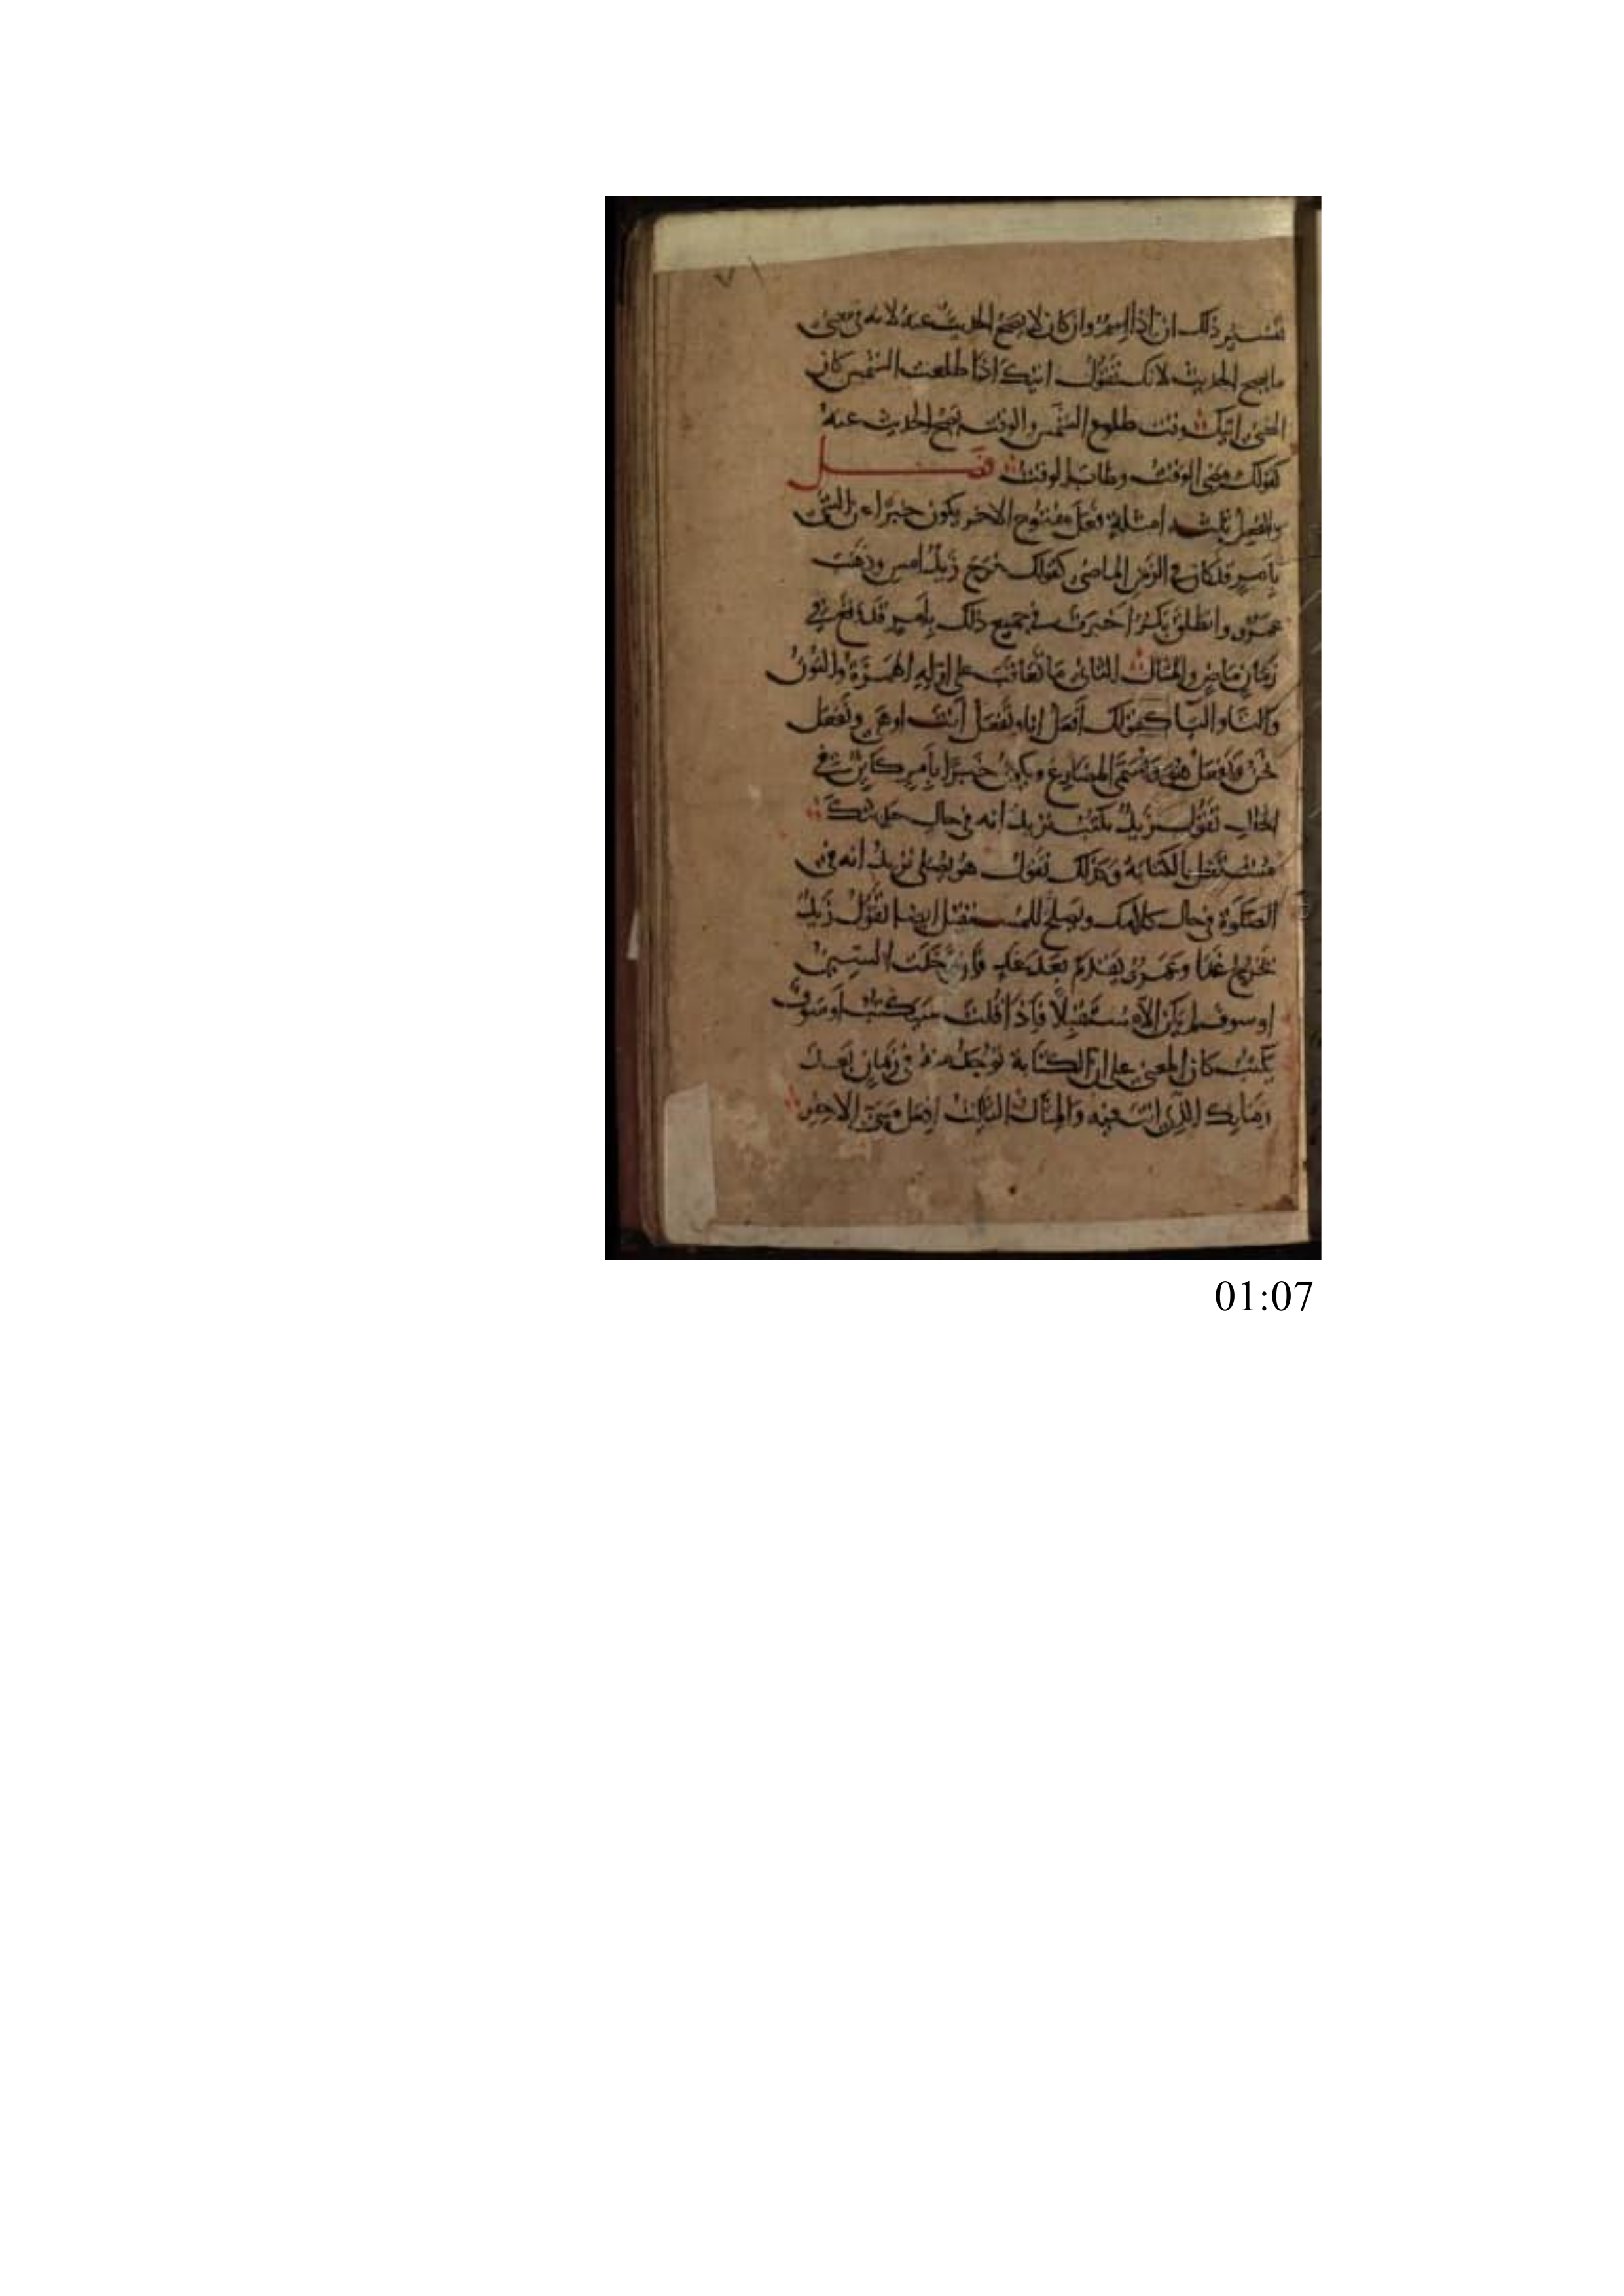 تفسير ذلك ان اذا اسم وان كان لا يصح الحديث عنه لانه في معنى
ما يصح الحديث لانك تقول اتيك اذا طلعت الشمس كان
المعنى اتيك وقت طلوع الشمس والوقت يصح الحديث عنه
كقولك مضى الوقت وطاب الوقت فصل
والفعل ثلثه امثلة فعل مفتوح الاخر يكون خبرا عن الشئ
بامر قد كان في الزمن الماضي كقولك خرج زيد امس وذهب
عمرو وانطلق بكر اخبرت في جميع ذلك بامر قد وقع في
زمان ماض والمثال الثاني ما تعاقب على اوله الهمزة والنون
والتا واليا كقولك افعل انا وتفعل انت او هي ونفعل
نحن ويفعل هو ويسمى المضارع ويكون خبرا بامر كاين في
الحال تقول زيد يكتب تريد انه في حال حديثك
مشتغل بالكتابة وكذلك تقول هو يصلي تريد انه في
الصلوة في حال كلامك ويصلح للمستقبل ايضا تقول زيد
يخرج غدا وعمرو يقدم بعد غد فان دخلت السين
او سوف لم يكن الا مستقبلا فاذا قلت سيكتب او سوف
يكتب كان المعنى على ان الكتابة توجد منه في زمان بعد
زمانك الذي انت فيه والمثال الثالث افعل مبني الاخر
01:07